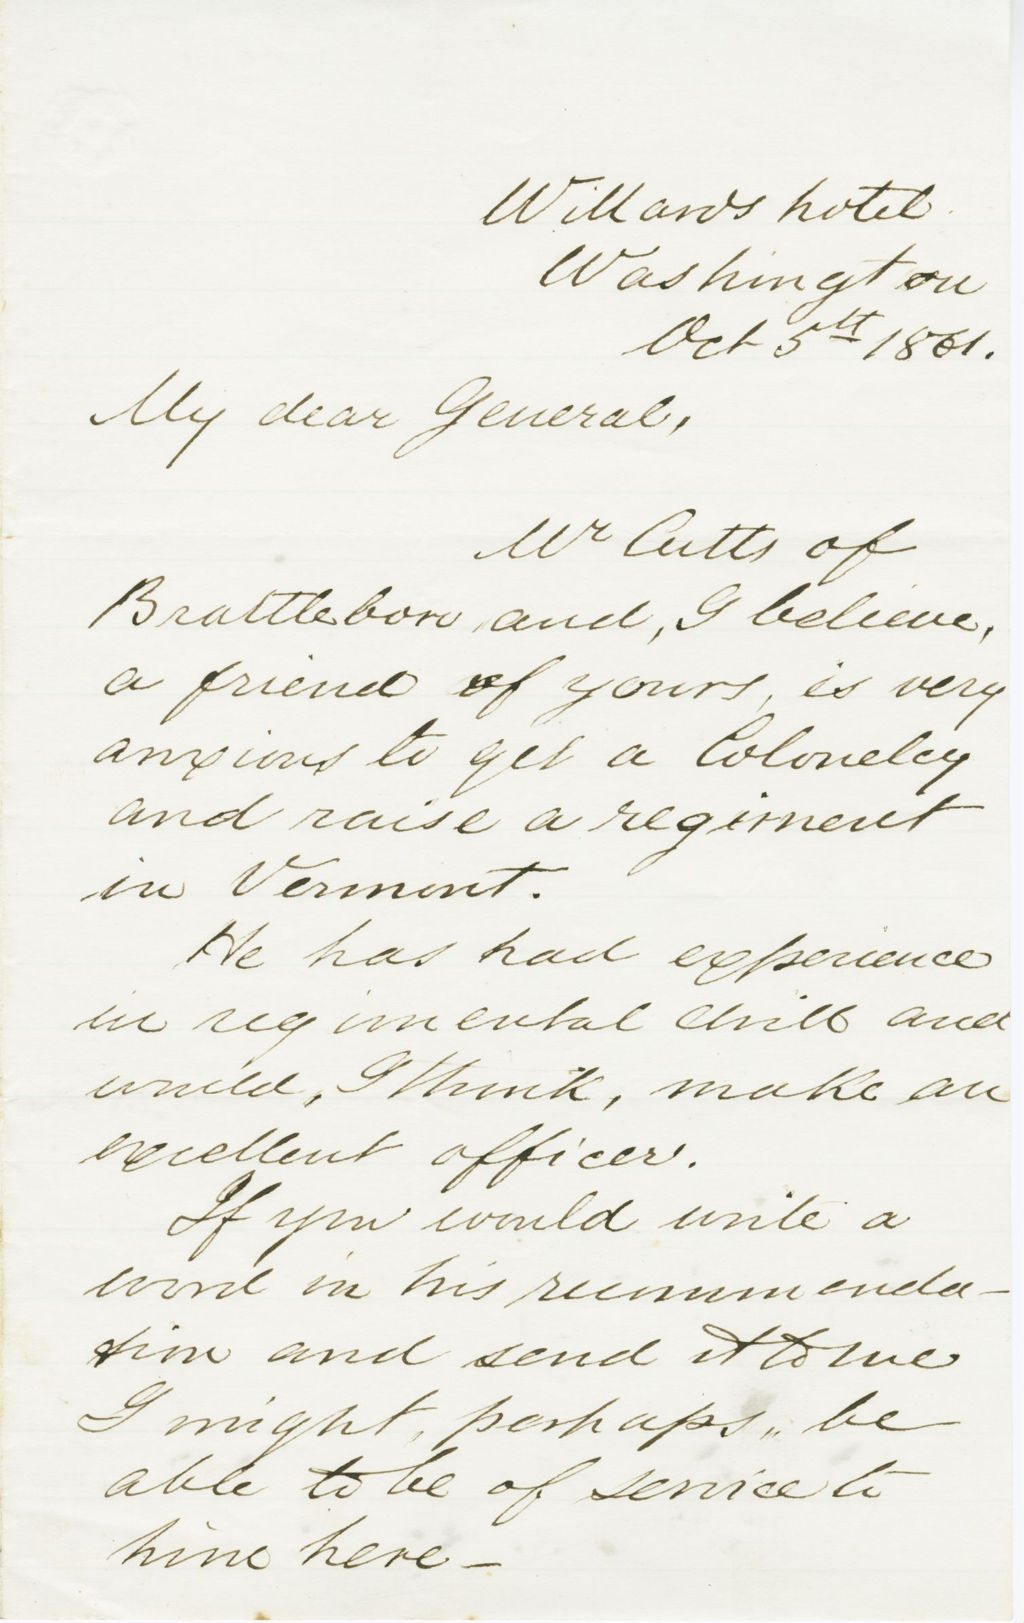 Willards hotel
Washington
Oct 5th 1861.
My dear General,
Mr Cutts of
Brattleboro and, I believe,
a friend of yours, is very
anxious to get a Colonelcy
and raise a regiment
in Vermont.
He has had experience
in regimental drill and
would, I think, make an
excellent officer.
If you would write a
word in his recommenda-
tion and send it to me
I might, perhaps, be
able to be of service to
him here -